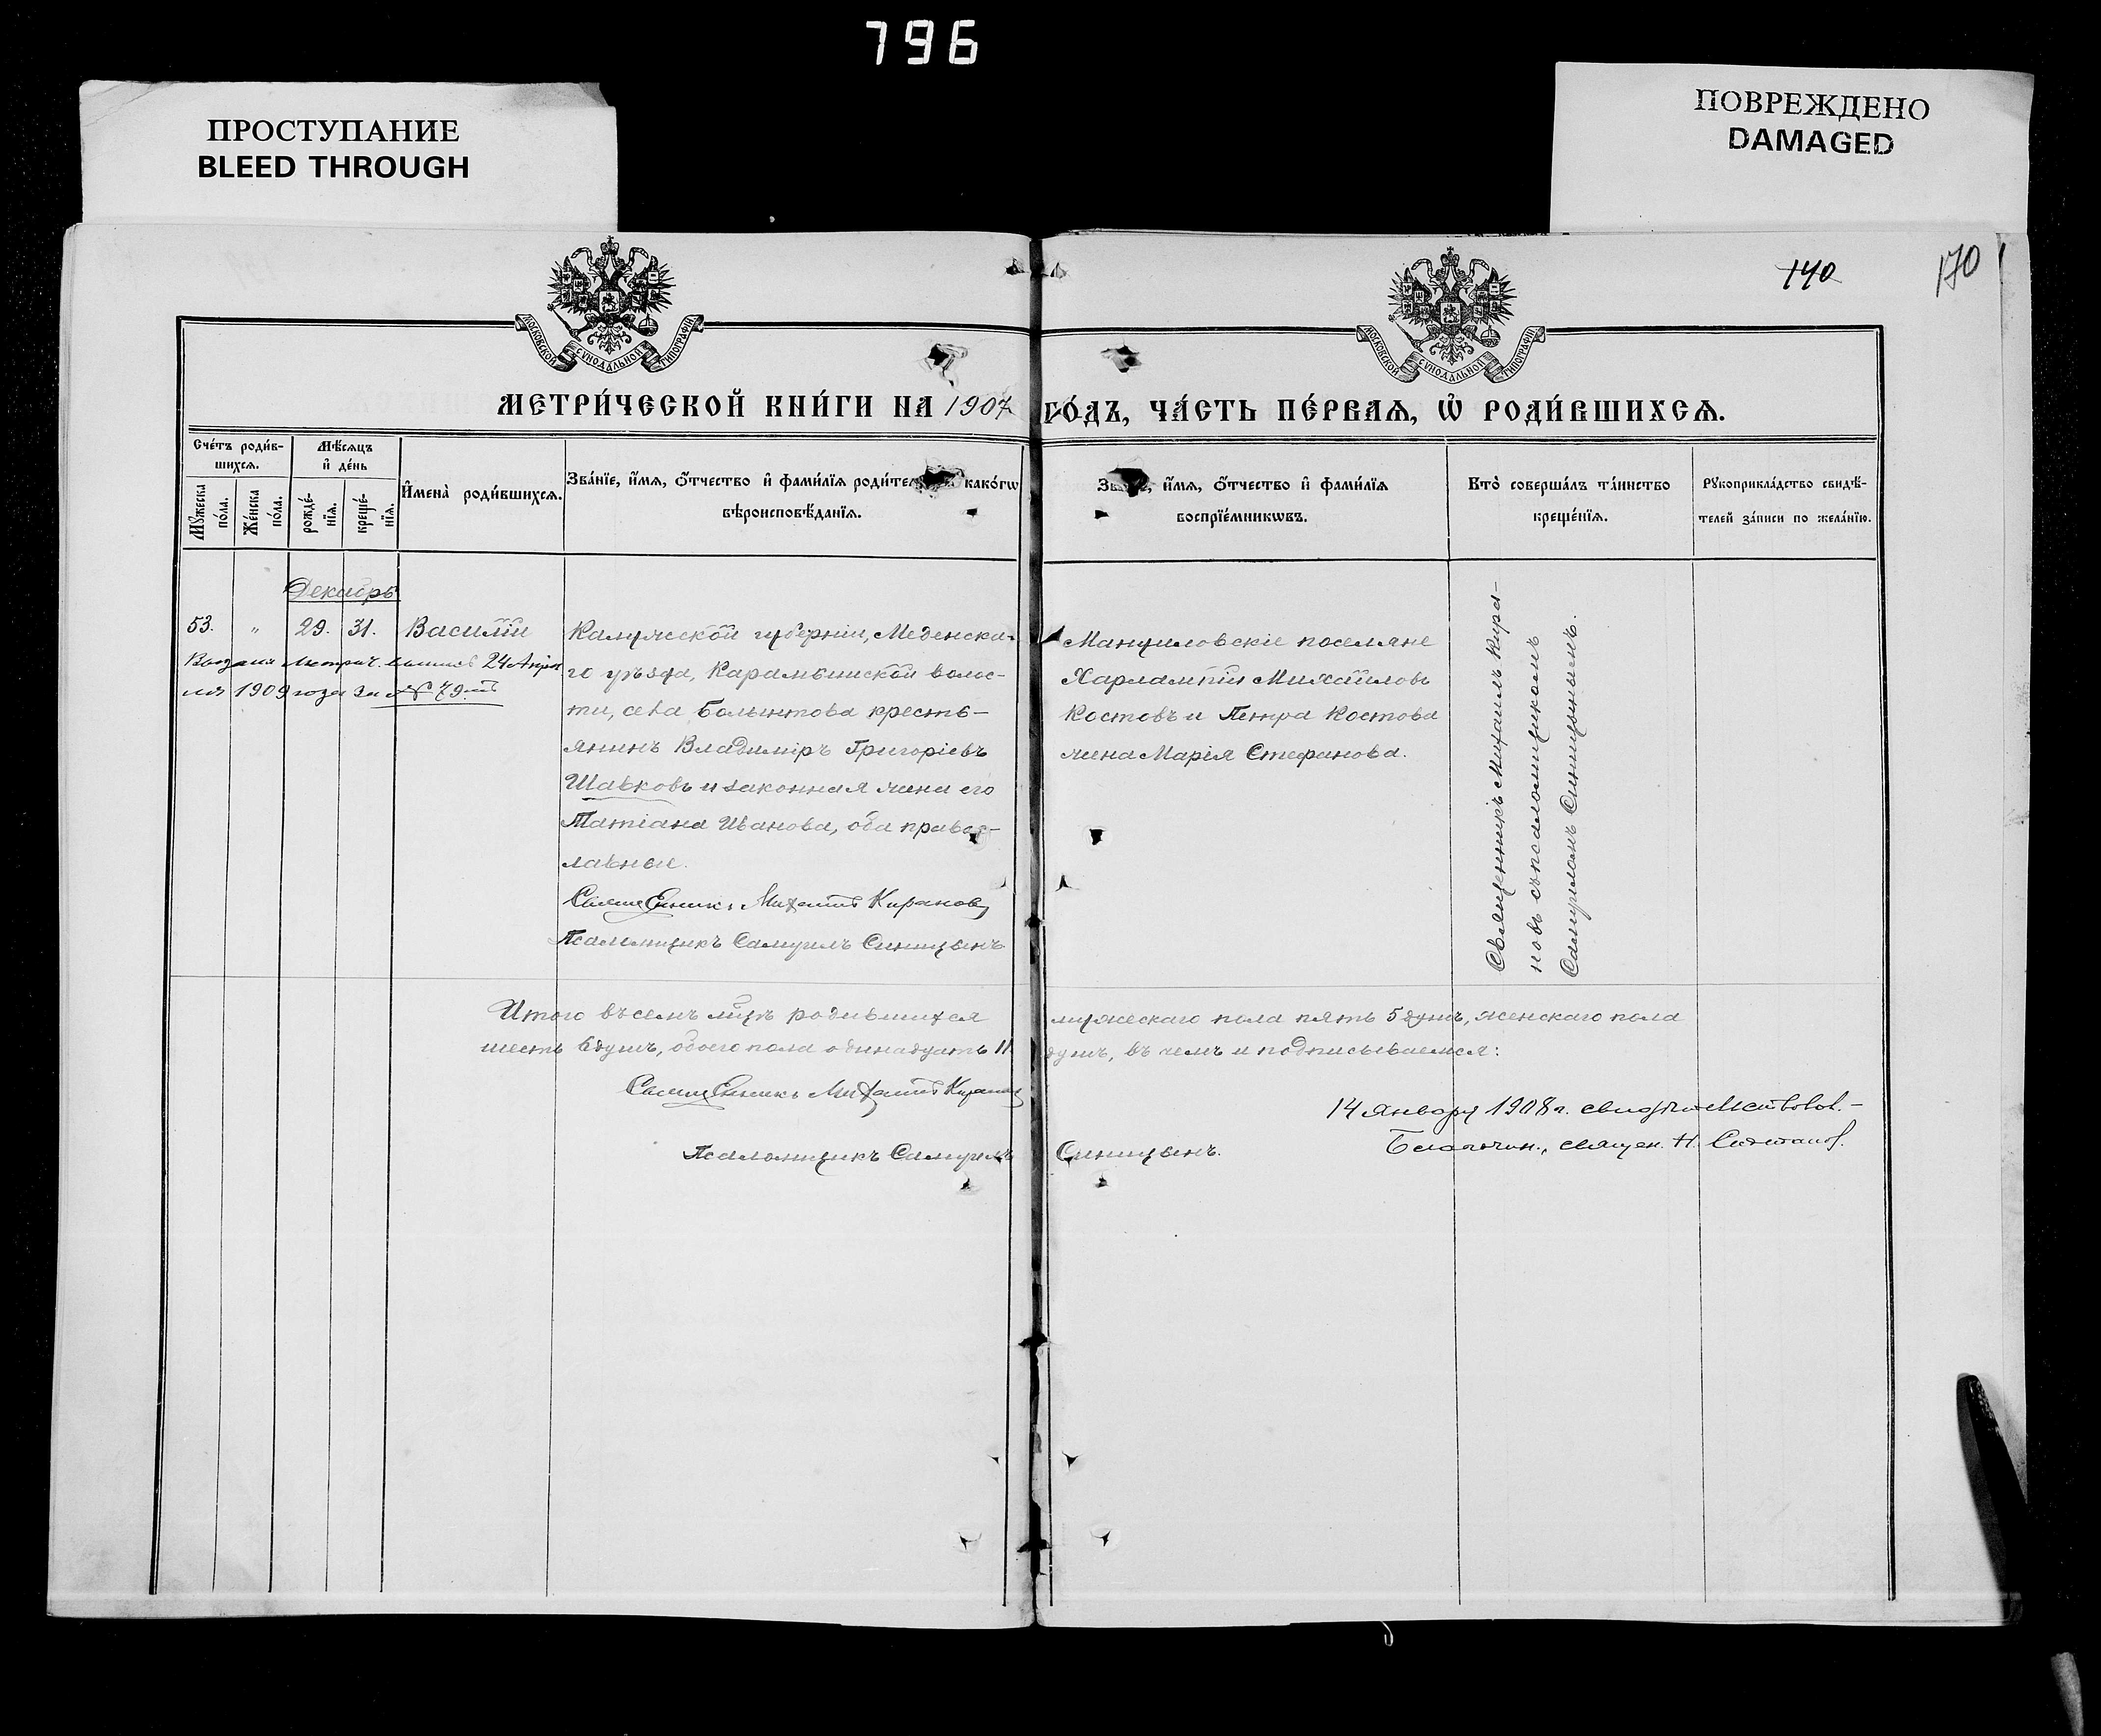 796
ПРОСТУПАНИЕ
BLEED THROUGH
ПОВРЕЖДЕНО
DAMAGED
140
170
МОСКОВСКОЙ СѴНОДАЛЬНОЙ ТИПОГРАФІИ
МОСКОВСКОЙ СѴНОДАЛЬНОЙ ТИПОГРАФІИ
МЕТРИ́ЧЕСКОЙ КНИ́ГИ НА 1907 ГО́ДЪ, ЧА́СТЬ ПЕ́РВАѦ, Ѡ҆ РОДИ́ВШИХСѦ.
Сче́тъ роди́в-
шихсѧ.
Мꙋ́жеска
по́ла.
Же́нска
по́ла.
Мѣ́сѧцъ
и҆ де́нь
рожде́-
нїѧ.
креще́-
нїѧ.
И҆мена̀ роди́вшихсѧ.
Зва́нїе, и҆́мѧ, ѻ҆́тчество и҆ фами́лїѧ роди́тел какогѡ
вѣроисповѣ́данїѧ.
и҆́мѧ, ѻ҆́тчество и҆ фами́лїѧ
воспрїе́мникѡвъ.
Кто̀ соверша́лъ та́инство
креще́нїѧ.
Рꙋкоприкла́дство свидѣ́-
телей за́писи по жела́нїю.
Декабрь
53. „ 29. 31. Василій
Выдана Метрич. выпись 24 Апрѣ
ля 1909 года за № 79.
Калужской губерніи, Меденска-
го уѣзда, Карамышской волос-
ти, села Болынтова кресть-
янинъ Владиміръ Григоріевъ
Шавковъ и законная жена его
Татіана Иванова, оба правос-
лавные.
Священникъ Михаилъ Кирановъ
Псаломщикъ Самуилъ Синицынъ
Манзиловскіе поселяне
Харлампій Михайловъ
Костовъ и Петра Костова
жена Марія Стефанова.
Священникъ Михаилъ Кира-
новъ съ псаломщикомъ
Самуиломъ Синицынымъ.
Итого въ семъ мѣсяцѣ родившихся мужескаго пола пять 5 душъ, женскаго пола
шесть 6 душъ, обоего пола одинадцать 11 душъ, въ чемъ и подписываемся:
Священникъ Михаилъ Кирановъ
Псаломщикъ Самуилъ Синицынъ.
14 Января 1908 г.
Благочин., священ. Н.